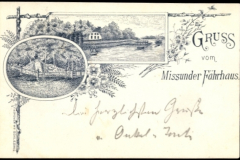 GRUSS
vom
Missunder Fährhaus
Die herzlichsten Grüße
Onkel